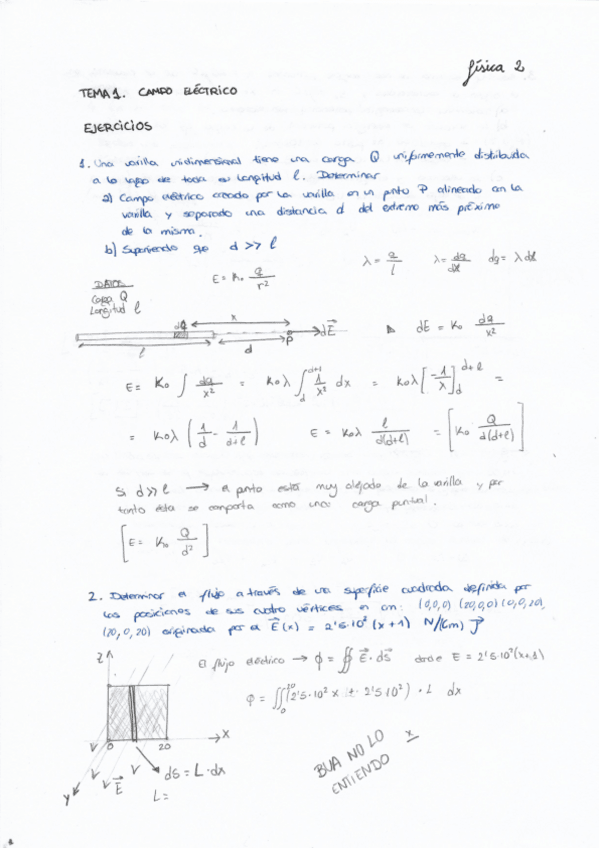 física 2
TEMA 1. CAMPO ELÉCTRICO
EJERCICIOS
1. Una varilla unidimensional tiene una carga Q uniformemente distribuida
a lo largo de toda su longitud l. Determinar
a) Campo eléctrico creado por la varilla en un punto P alineado con la
varilla y separado una distancia d del extremo más próximo
de la misma.
b) Suponiendo que d >> l
λ = Q/l   λ = dq/dl   dq = λ dl
DATOS
Carga Q
Longitud l
E = K₀ Q/r²
dq x dE⃗
P
l d
dE = K₀ dq/x²
E = K₀ ∫ dq/x² = K₀λ ∫_d^{d+l} 1/x² dx = K₀λ [-1/x]_d^{d+l} =
= K₀λ (1/d - 1/(d+l))   E = K₀λ l/(d(d+l)) = [K₀ Q/(d(d+l))]
Si d >> l → el punto está muy alejado de la varilla y por
tanto ésta se comporta como una carga puntual.
[E = K₀ Q/d²]
2. Determinar el flujo a través de una superficie cuadrada definida por
las posiciones de sus cuatro vértices en cm: (0,0,0) (20,0,0) (0,0,20),
(20,0,20) originada por el E⃗(x) = 2'5·10² (x+1) N/(cm) J⃗
El flujo eléctrico → ϕ = ∯ E⃗·dS⃗ donde E = 2'5·10²(x+1)
ϕ = ∬₀²⁰ (2'5·10² x + 2'5·10²) · L dx
Z
0 20 X
y
E⃗
dS = L·dx
L =
x
BUA NO LO
ENTIENDO